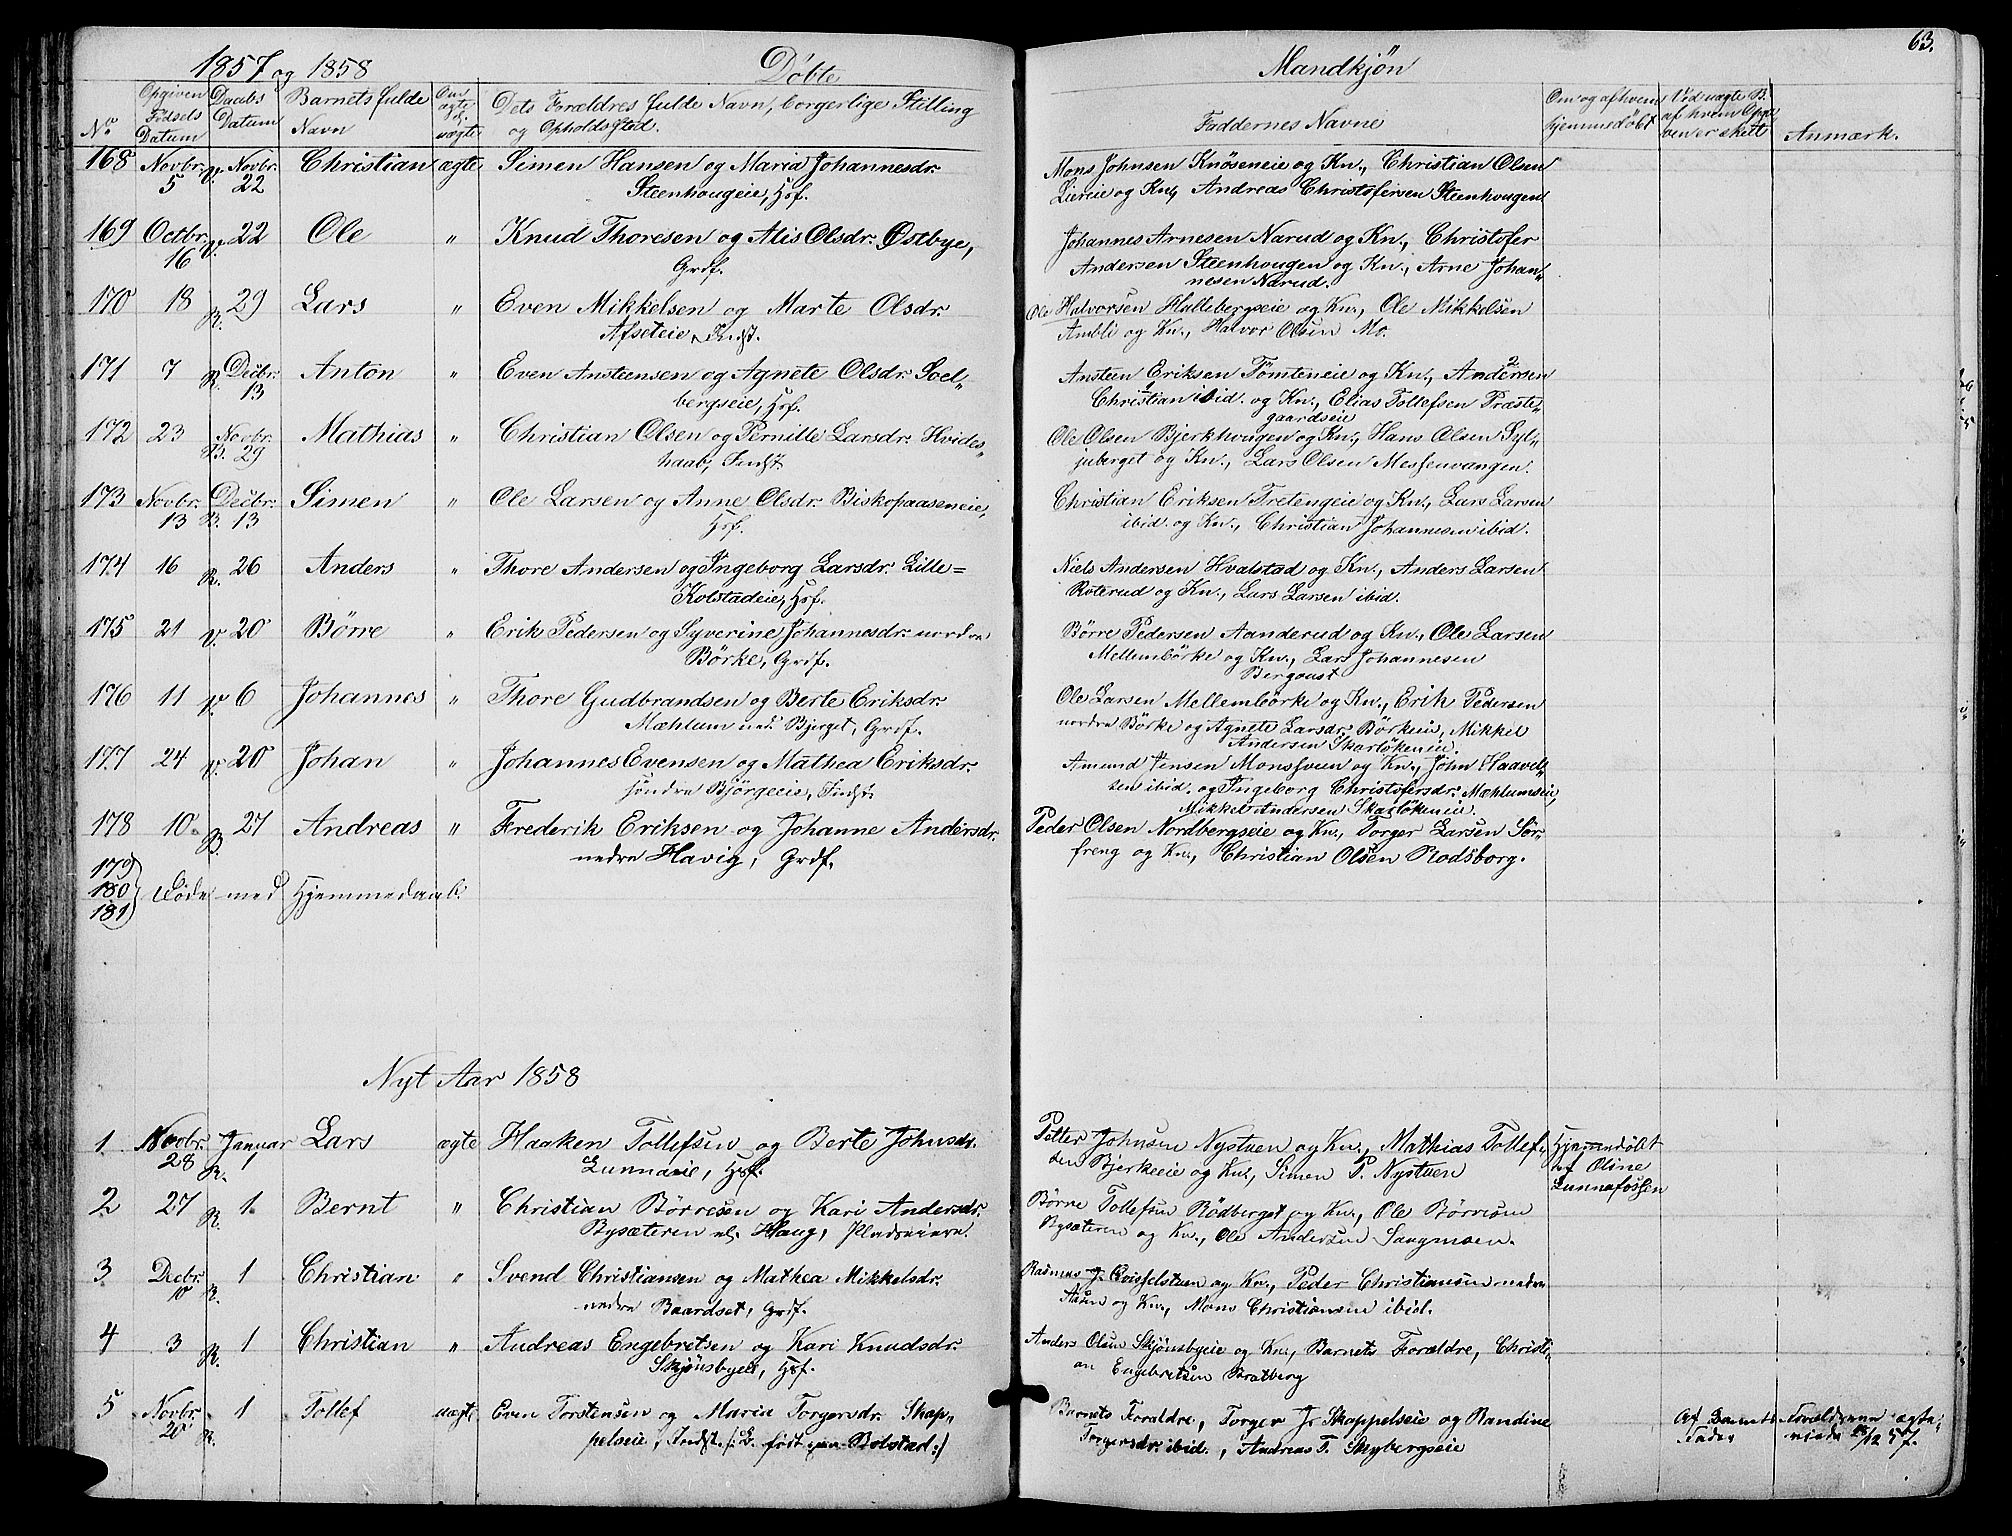 1857 og 1858 Døbte
Mandkjön
63.
No Opgiven Fødsels Datum Daabs Datum Barnets fulde Navn Om ægte el. uægte Dets Forældres fulde Navn, borgerlige Stilling og Opholdssted.
Faddernes Navne Om og af hvem hjemmedøbt Ved uægte B. af hvem Opgiven er skett Anmærk.
168 Novbr. 5 V. Novbr. 22 Christian ægte Simen Hansen og Maria Johannesdr.
Steenhougeie, Hsf.
Mons Johnsen Knöseneie og Kn., Christian Olsen
Liereie og Kn, Andreas Christofersen Steenhougen
169 Octbr. 16 V. 22 Ole " Knud Thoresen og Alis Olsdr. Østbye,
Grdf.
Johannes Arnesen Narud og Kn., Christofer
Andersen Steenhougen og Kn., Arne Johan„
nesen Narud.
170 18 R. 29 Lars " Even Mikkelsen og Marte Olsdr.
Afseteie, Indst.
Ole Halvorsen Hullebergseie og Kn, Ole Mikkelsen
Ambli og Kn., Halvor Olsen Mo.
171 7 R. Decbr. 13 Anton " Even Ansteensen og Agnete Olsdr. Soel„
bergseie, Hsf.
Ansteen Eriksen Tömteneie og Kn., Andersen 2
Christian 1 ibid. og Kn., Elias Tollefsen Præste„
gaardseie
172 23 Novbr. B. 29 Mathias " Christian Olsen og Pernille Larsdr. Hvides„
haab, Indst
Ole Olsen Bjerkhougen og Kn., Hans Olsen Syl„
juberget og Kn., Lars Olsen Messenvangen.
173 Novbr. 13 Decbr. B. 13 Simen " Ole Larsen og Anne Olsdr. Biskopaaseneie,
Hsf.
Christian Eriksen Tretengeie og Kn., Lars Larsen
ibid. og Kn., Christian Johannesen ibid.
174 16 R. 26 Anders " Thore Andersen og Ingeborg Larsdr. Lille=
Kolstadeie, Hsf.
Niels Andersen Hvalstad og Kn., Anders Larsen
Roterud og Kn., Lars Larsen ibid.
175 21 V. 20 Börre " Erik Pedersen og Syverine Johannesdr. nordre
Börke, Grdf.
Börre Pedersen Aanderud og Kn., Ole Larsen
Mellembörke og Kn., Lars Johannesen
Bergoust
176 11 V. 6 Johannes " Thore Gudbrandsen og Berte Eriksdr.
Mæhlum Bjerget, Grdf.
Ole Larsen Mellembörke og Kn., Erik Pedersen
nordre Börke og Agnete Larsdr. Börkeeie, Mikkel
Andersen Skarlökeneie.
177 24 V. 20 Johan " Johannes Evensen og Mathea Eriksdr.
söndre Björgeeie, Indst
Amund Jensen Monssveen og Kn., John Haavel„
sen ibid. og Ingeborg Christofersdr. Mæhlumseie,
Mikkel Andersen Skarlökeneie.
178 10 B. 27 Andreas " Frederik Eriksen og Johanne Andersdr.
nedre Havig, Grdf.
Peder Olsen Nordbergseie og Kn., Torger Larsen Sör„
freng og Kn., Christian Olsen Rodsborg.
179
180 Døde med Hjemmedaab.
181
Nyt Aar 1858
1 Novbr. 28 R. Januar 1 Lars ægte Haaken Tollefsen og Berte Johnsdr.
Lunndeie, Hsf.
Petter Johnsen Nystuen og Kn., Mathias Tollef„
sen Bjerkeeie og Kn., Simen P. Nystuen
Hjemmedöbt af Oline Lunnafossen
2 27 R. 1. Bernt " Christian Börresen og Kari Andersdr.
Bysæteren Haug, Pladseiere.
Börre Tollefsen Rödberget og Kn., Ole Börresen
Bysæteren og Kn., Ole Andersen Saugmoen.
3 Decbr. 10 R. 1 Christian " Svend Christiansen og Mathea Mikkelsdr.
nedre Baardset, Grdf.
Rasmus J. Qvisselstuen og Kn., Peder Christiansen nedre
Aasen og Kn., Mons Christiansen ibid.
4 3 R. 1 Christian " Andreas Engebretsen og Kari Knudsdr.
Skjönsbyeie, Hsf.
Anders Olsen Skjönsbyeie og Kn., Barnets Forældre, Christi„
an Engebretsen Bratberg
5 Novbr. 20 R. 1 Tollef uægte Even Torstensen og Maria Torgersdr. Skap„
pelseie, Indst. /: B. født paa Bolstad :/
Barnets Forældre, Torger J. Skappelseie og Randine
Torgersdr. ibid., Andreas T. Skybergseie
Af Barnets Fader
Forældrene ægte„
viede 28/12 57.